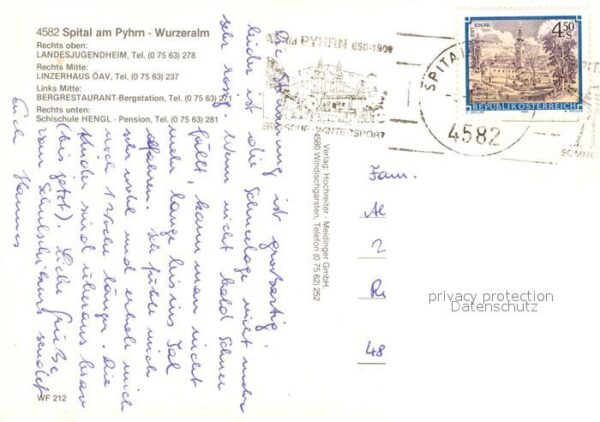 4582 Spital am Pyhrn · Wurzeralm
Rechts oben:
LANDESJUGENDHEIM, Tel. (0 75 63) 278
Rechts Mitte:
LINZERHAUS ÖAV, Tel. (0 75 63) 237
Links Mitte:
BERGRESTAURANT-Bergstation, Tel. (0 75 63) 275
Rechts unten:
Schischule HENGL · Pension, Tel. (0 75 63) 281
Die Stimmung ist großartig!
leider ist die Schneelage nicht mehr
sehr rosig. Wenn nicht bald Schnee
fällt, kann man nicht
mehr lange bis ins Tal
abfahren. Ich fühle mich
sehr wohl und erhole mich
noch 1 Woche länger. Die
Kinder sind überaus brav
(bis jetzt). Liebe Grüße
vom Schulschikurs sendet
Euch Hannes
WF 212
Verlag: Hochreiter · Meidinger GmbH.
4580 Windischgarsten, Telefon (0 75 62) 252
PYHRN 650-1900
WINTERSPORT
SPITAL
4582
4.50
S
REPUBLIK ÖSTERREICH
Fam.
Al
2
48
privacy protection
Datenschutz